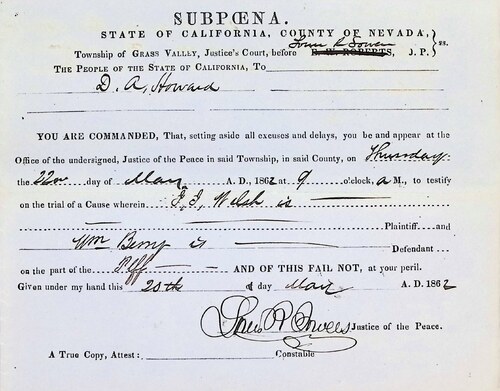 SUBPŒNA.
STATE OF CALIFORNIA, COUNTY OF NEVADA, } ss.
Township of GRASS VALLLY, Justice's Court, before R. W. ROBERTS, J. P.
THE PEOPLE OF THE STATE OF CALIFORNIA, TO
D. A. Howard
YOU ARE COMMANDED, That, setting aside all excuses and delays, you be and appear at the
Office of the undersigned, Justice of the Peace in said Township, in said County, on Thursday
the 22nd day of May A. D., 1862 at 9 o'clock, a M., to testify
on the trial of a Cause wherein Welsh is
Plaintiff and
Wm Berry is Defendant
on the part of the Plff AND OF THIS FAIL NOT, at your peril.
Given under my hand this 20th of day May A. D. 1862
Justice of the Peace.
A True Copy, Attest: Constable